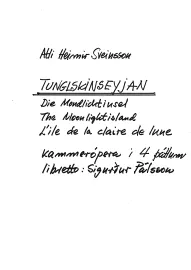 Atli Heimir Sveinsson
TUNGLSKINSEYJAN
Die Mondlichtinsel
The Moonlightisland
L'île de la claire de lune
kammerópera í 4 þáttum
libretto: Sigurður Pálsson